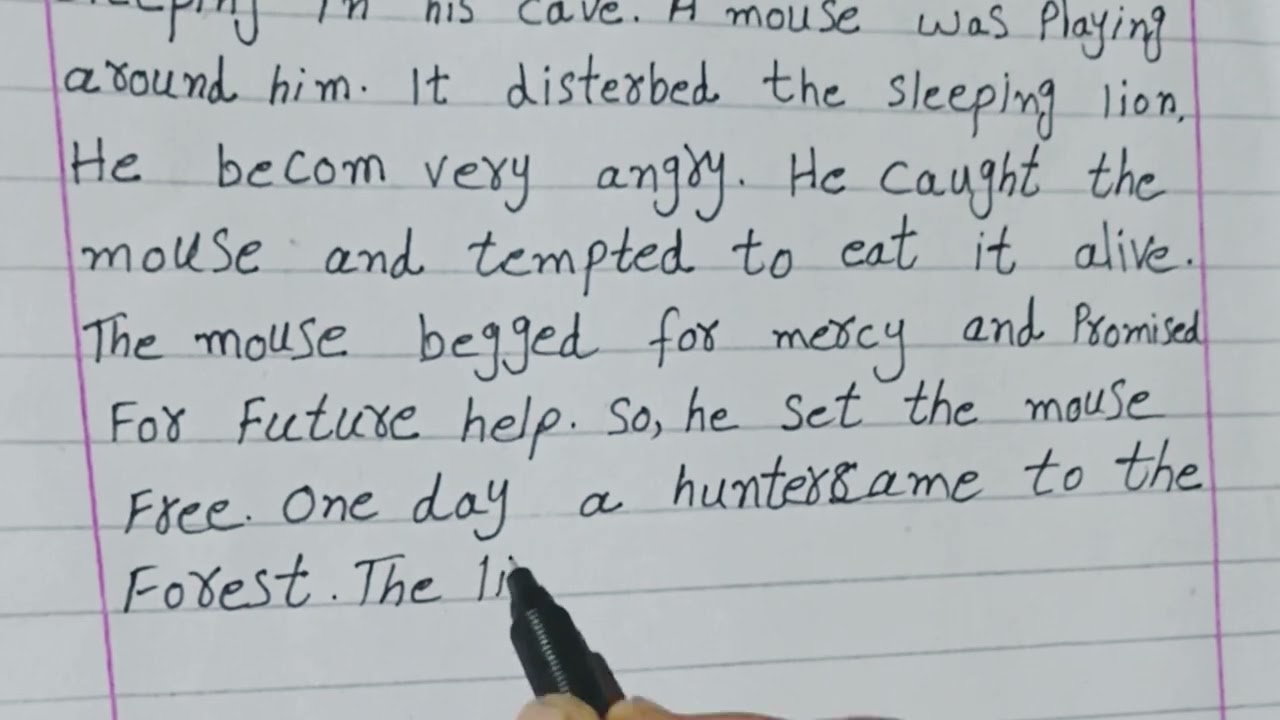 sleeping in his cave. A mouse was Playing
around him. It disterbed the sleeping lion.
He becom very angry. He caught the
mouse and tempted to eat it alive.
The mouse begged for mercy and Promised
For Future help. So, he set the mouse
Free. One day a hunter came to the
Forest. The li